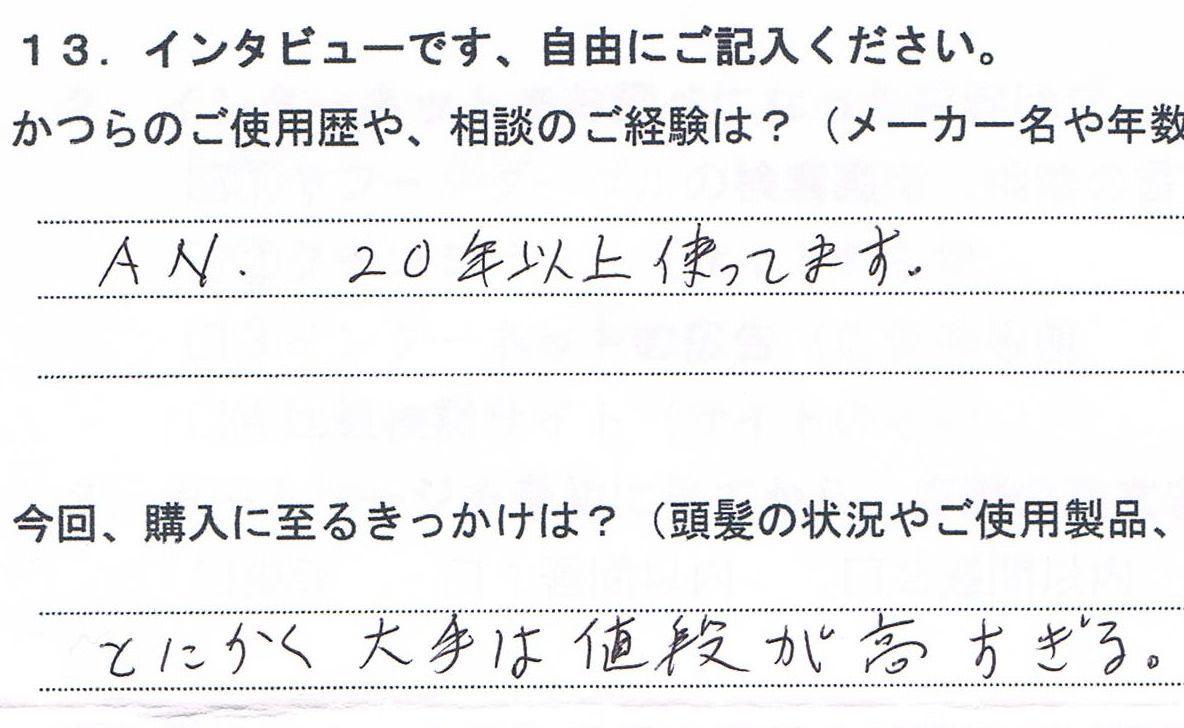 13．インタビューです、自由にご記入ください。
かつらのご使用歴や、相談のご経験は？（メーカー名や年数
AN. 20年以上使ってます。
今回、購入に至るきっかけは？（頭髪の状況やご使用製品、
とにかく大手は値段が高すぎる。